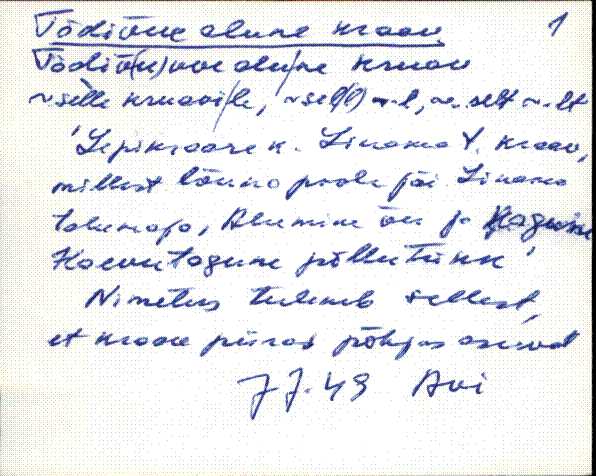 Tõdiõue alune kraav 1
Tõdiõ(u)ue alu/ne kraav
~selle kraavi/le, ~sel(l) ~l, ~selt ~lt
'Lepiksaare k. Linama t. kraav,
millest lõuna poole jäi Linama
talumaja, Alumine õu ja
Kaevutagune põllutükk'
Nimetus tuleneb sellest,
et kraav piiras põhjas asuvat
JJ. 49 Avi